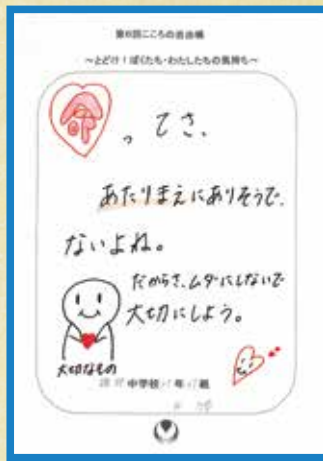 第6回こころの自由帳
～とどけ！ぼくたち・わたしたちの気持ち～
命ってさ、
あたりまえにありそうで、
ないよね。
だからさ、ムダにしないで
大切にしよう。
大切なもの
中学校 年 組